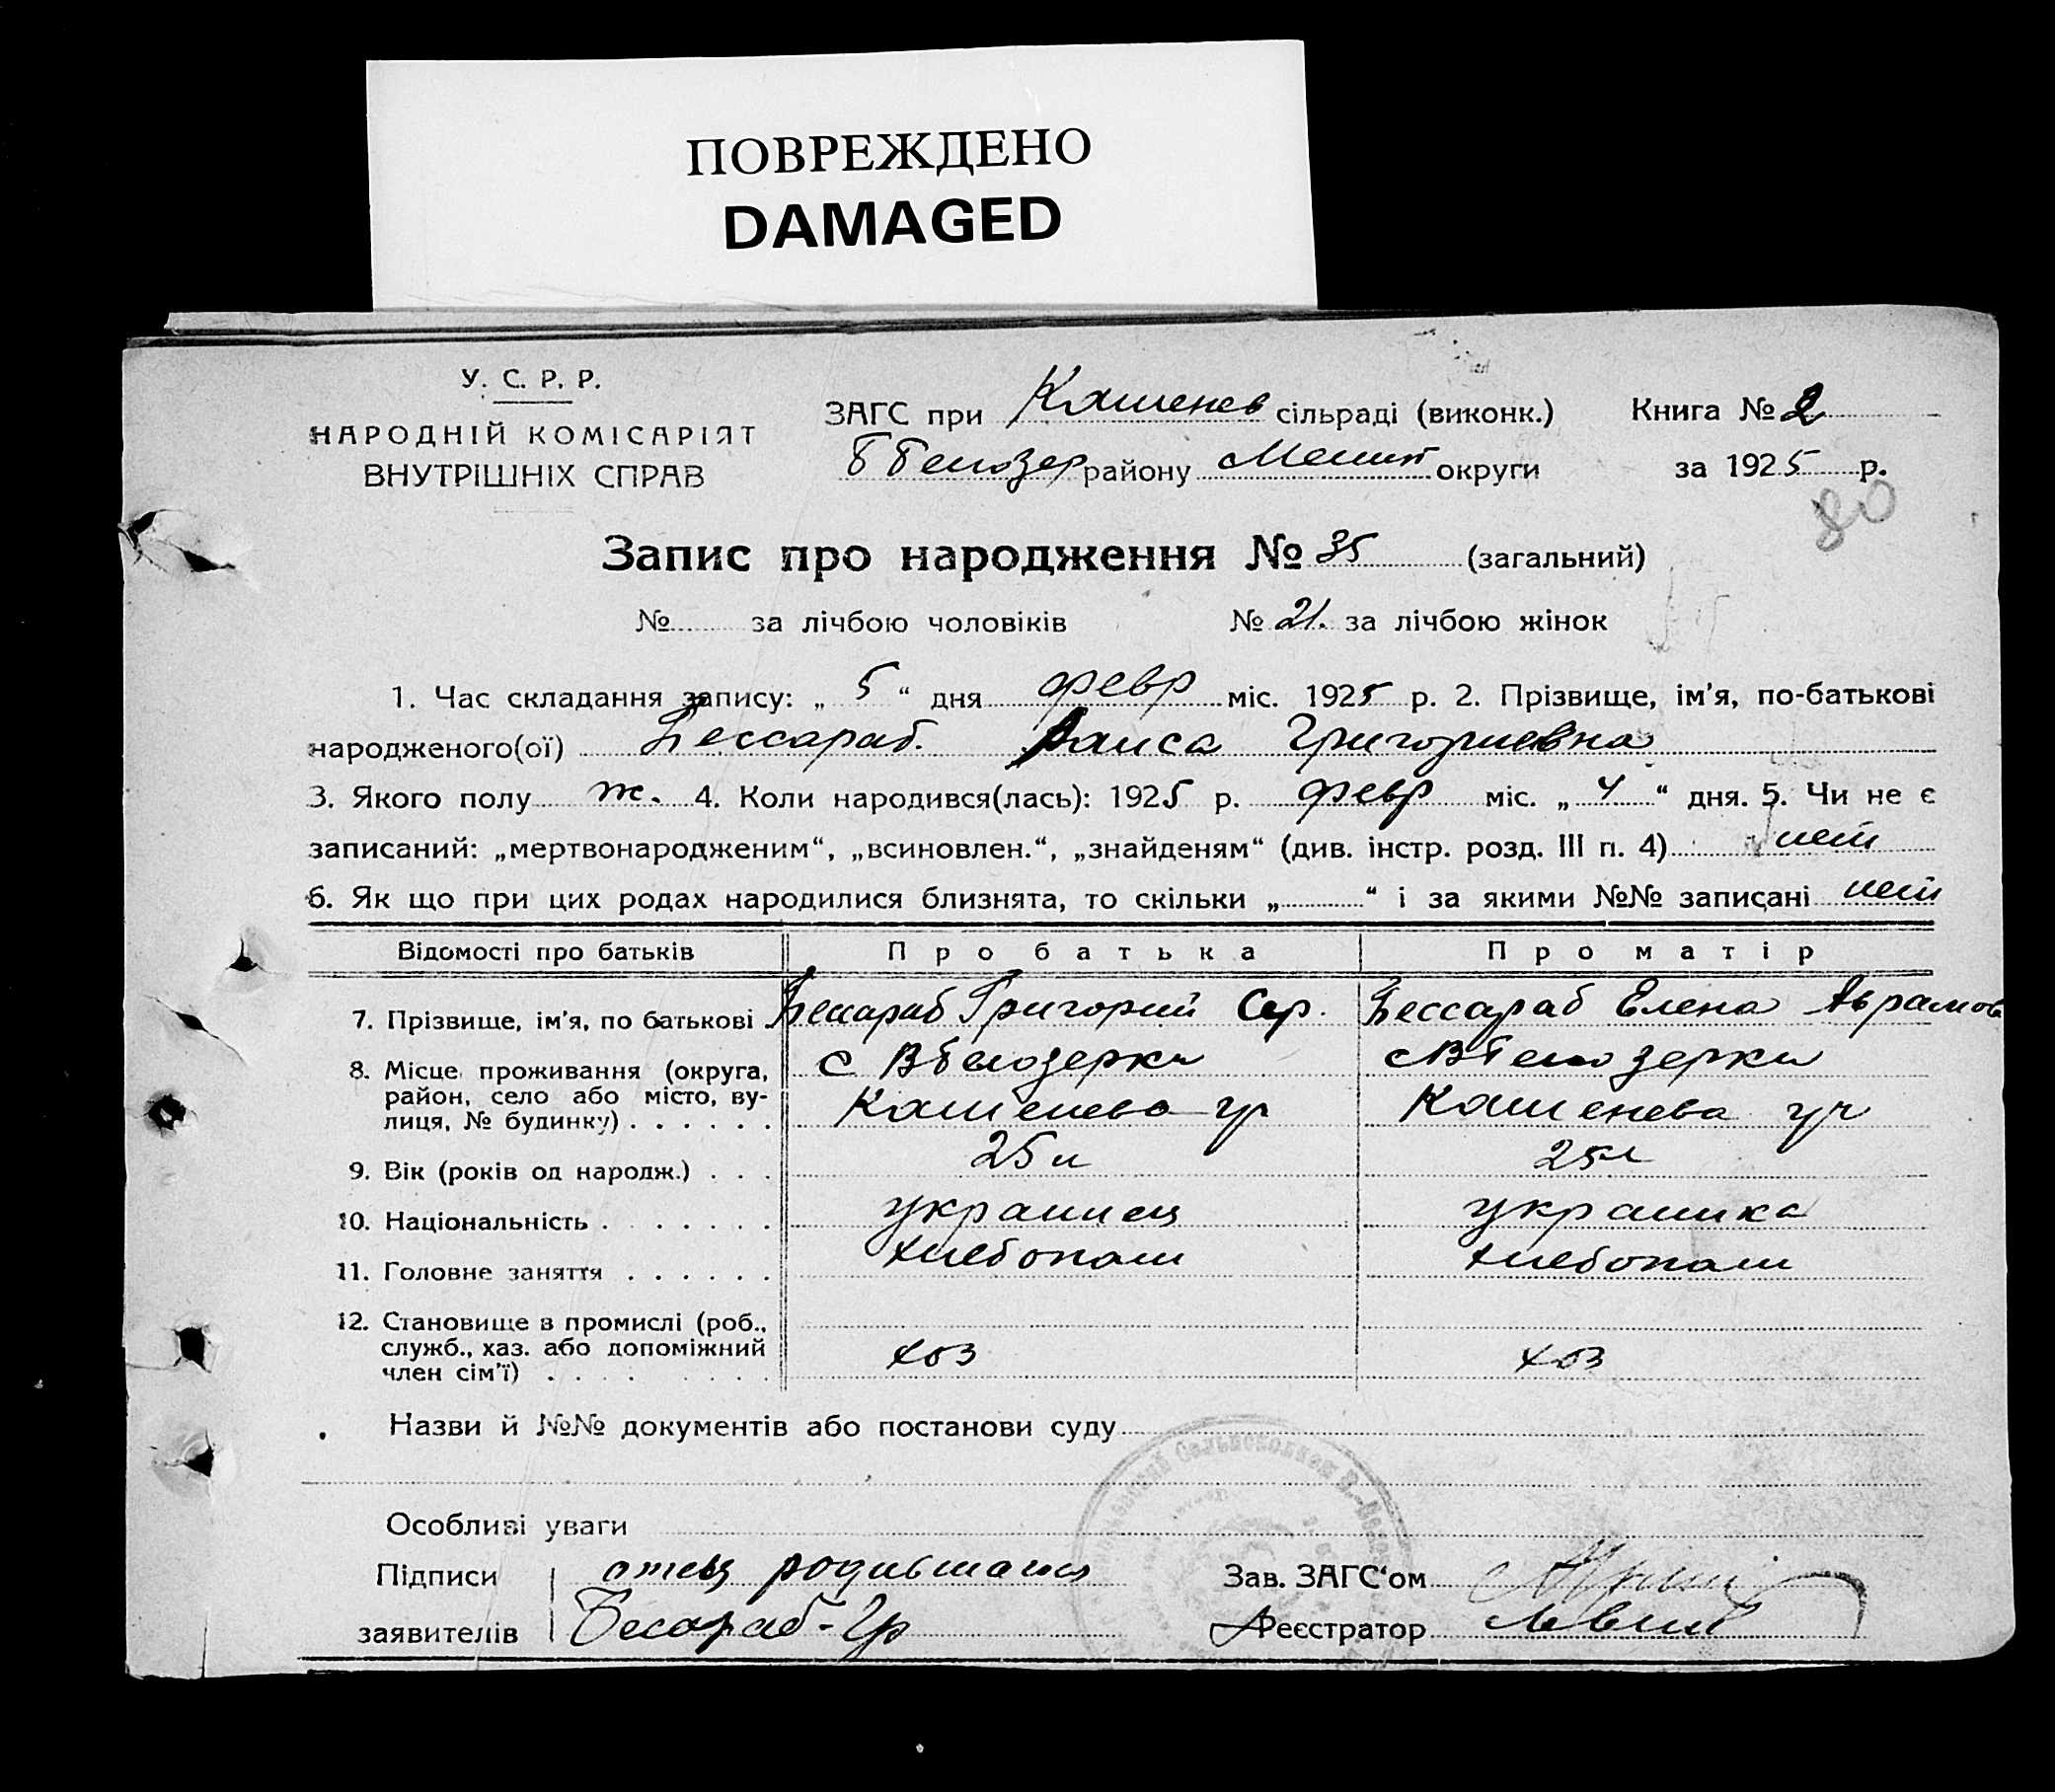 ПОВРЕЖДЕНО
DAMAGED
У. С. Р. Р.
НАРОДНІЙ КОМІСАРІЯТ
ВНУТРІШНІХ СПРАВ
ЗАГС при Кашенев сільраді (виконк.)
Книга № 2
району Мелит округи
за 1925 р.
80
Запис про народження № 35 (загальний)
№ за лічбою чоловіків № 21. за лічбою жінок
1. Час складання запису: „ 5 “ дня февр міс. 1925 р. 2. Прізвище, ім'я, по-батькові
народженого(ої) Бессараб. Раиса Григориевна
3. Якого полу ж. 4. Коли народився(лась): 1925 р. февр міс. „ 4 “ дня. 5. Чи не є
записаний: „мертвонародженим“, „всиновлен.“, „знайденям“ (див. інстр. розд. III п. 4) нет
6. Як що при цих родах народилися близнята, то скільки „ “ і за якими №№ записані нет
Відомості про батьків Про батька Про матір
7. Прізвище, ім'я, по батькові Бессараб Григорий Сер. Бессараб Елена Аврамов
8. Місце проживання (округа, с ВБелозерки с ВБелозерки
район, село або місто, ву-
лиця, № будинку) . . . . . . Кашенева Кашенева уч
9. Вік (років од народж.) . . . 25 л 25 л
10. Національність . . . . . . . украинец украинка
11. Головне заняття . . . . . . хлебопаш хлебопаш
12. Становище в промислі (роб.,
служб., хаз. або допоміжний хоз хоз
член сім'ї) . . . . . . . .
Назви й №№ документів або постанови суду
Особливі уваги
Підписи отец родившагося
Зав. ЗАГС'ом
заявителів Бесараб-Гр
Реєстратор